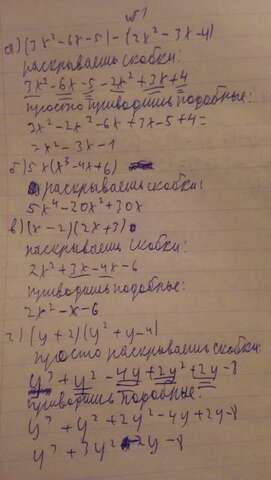 №1
а) (3x²-6x-5)-(2x²-3x-4)
раскрываешь скобки:
3x²-6x-5-2x²+3x+4
просто приводишь подобные:
3x²-2x²-6x+3x-5+4=
=x²-3x-1
б) 5x(x³-4x+6)
раскрываешь скобки:
5x⁴-20x²+30x
в) (x-2)(2x+3)
раскрываешь скобки:
2x²+3x-4x-6
приводишь подобные:
2x²-x-6
г) (y+2)(y²+y-4)
просто раскрываешь скобки:
y³+y²-4y+2y²+2y-8
приводишь подобные:
y³+y²+2y²-4y+2y-8
y³+3y²-2y-8